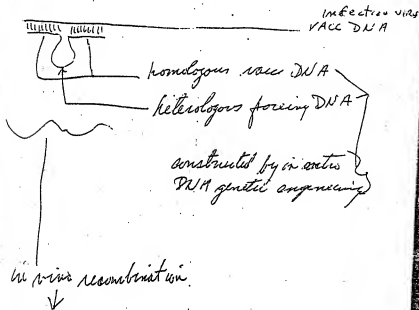 infection virs
vacc DNA
homologous vacc DNA
heterologous foreing DNA
constructed by in
DNA genetic engineering
in vivo recombination.